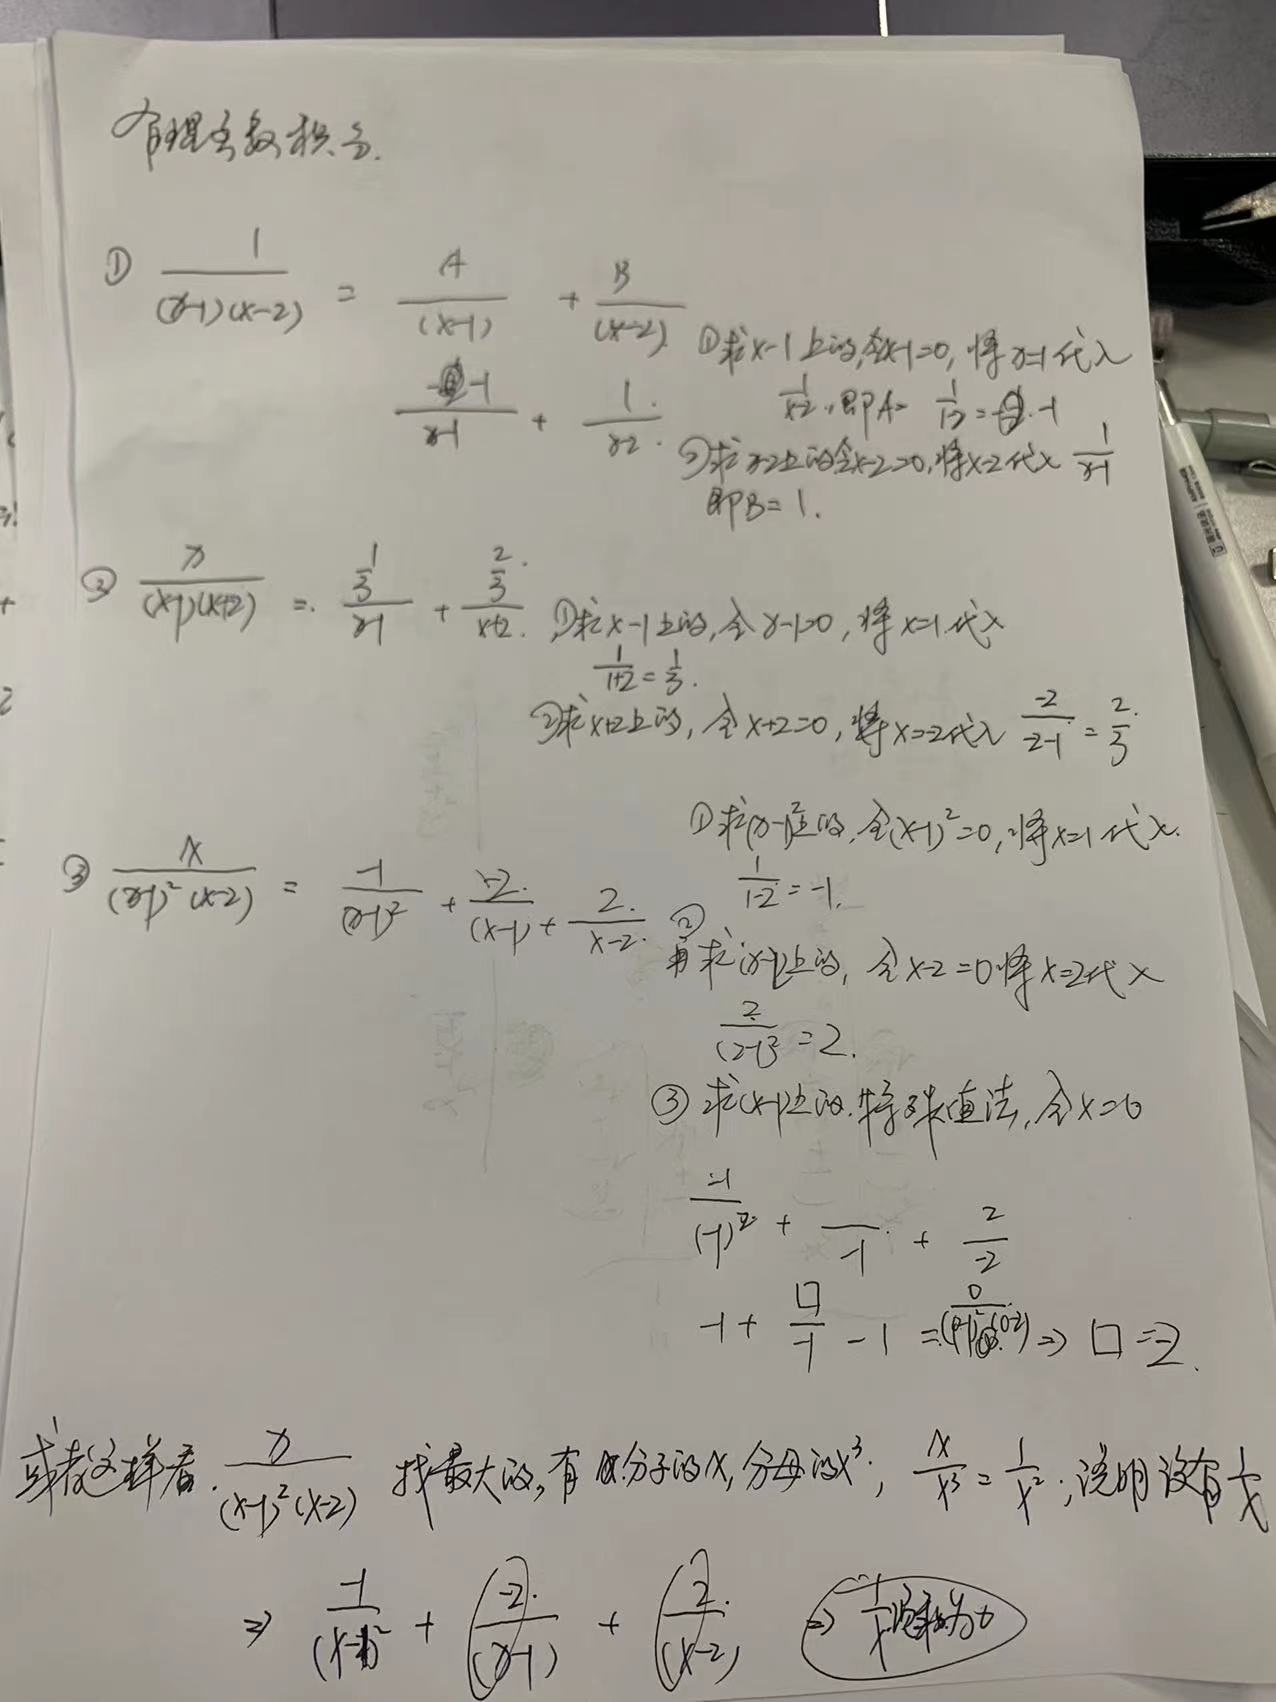 有理函数积分.
① 1/((x-1)(x-2)) = A/(x-1) + B/(x-2)
①求x-1上的,令x-1=0,将x=1代入
-1/(x-1) + 1/(x-2)
1/(x-2),即A= 1/(1-2) = -1
②求x-2上的令x-2=0,将x=2代入 1/(x-1)
即B=1.
② x/((x-1)(x+2)) = (1/3)/(x-1) + (2/3)/(x+2)
①求x-1上的,令x-1=0,将x=1代入
1/(1+2) = 1/3.
②求x+2上的,令x+2=0,将x=-2代入 -2/(-2-1) = 2/3
①求(x-1)²上的,令(x-1)²=0,将x=1代入.
③ x/((x-1)²(x-2)) = -1/(x-1)² + -2/(x-1) + 2/(x-2)
1/(1-2) = -1.
②再求(x-2)上的,令x-2=0将x=2代入
2/(2-1)² = 2.
③求(x-1)上的.特殊值法,令x=0
-1/(-1)² + /-1 + 2/-2
-1 + □/-1 - 1 = 0/((0-1)²(0-2)) ⇒ □=-2.
或者这样看. x/((x-1)²(x-2)) 找最大的,有分子的x,分母的x³; x/x³ = 1/x²;说明没有1/x
⇒ -1/(x-1)² + (-2/(x-1)) + (2/(x-2)) ⇒ 1/x 系数为0